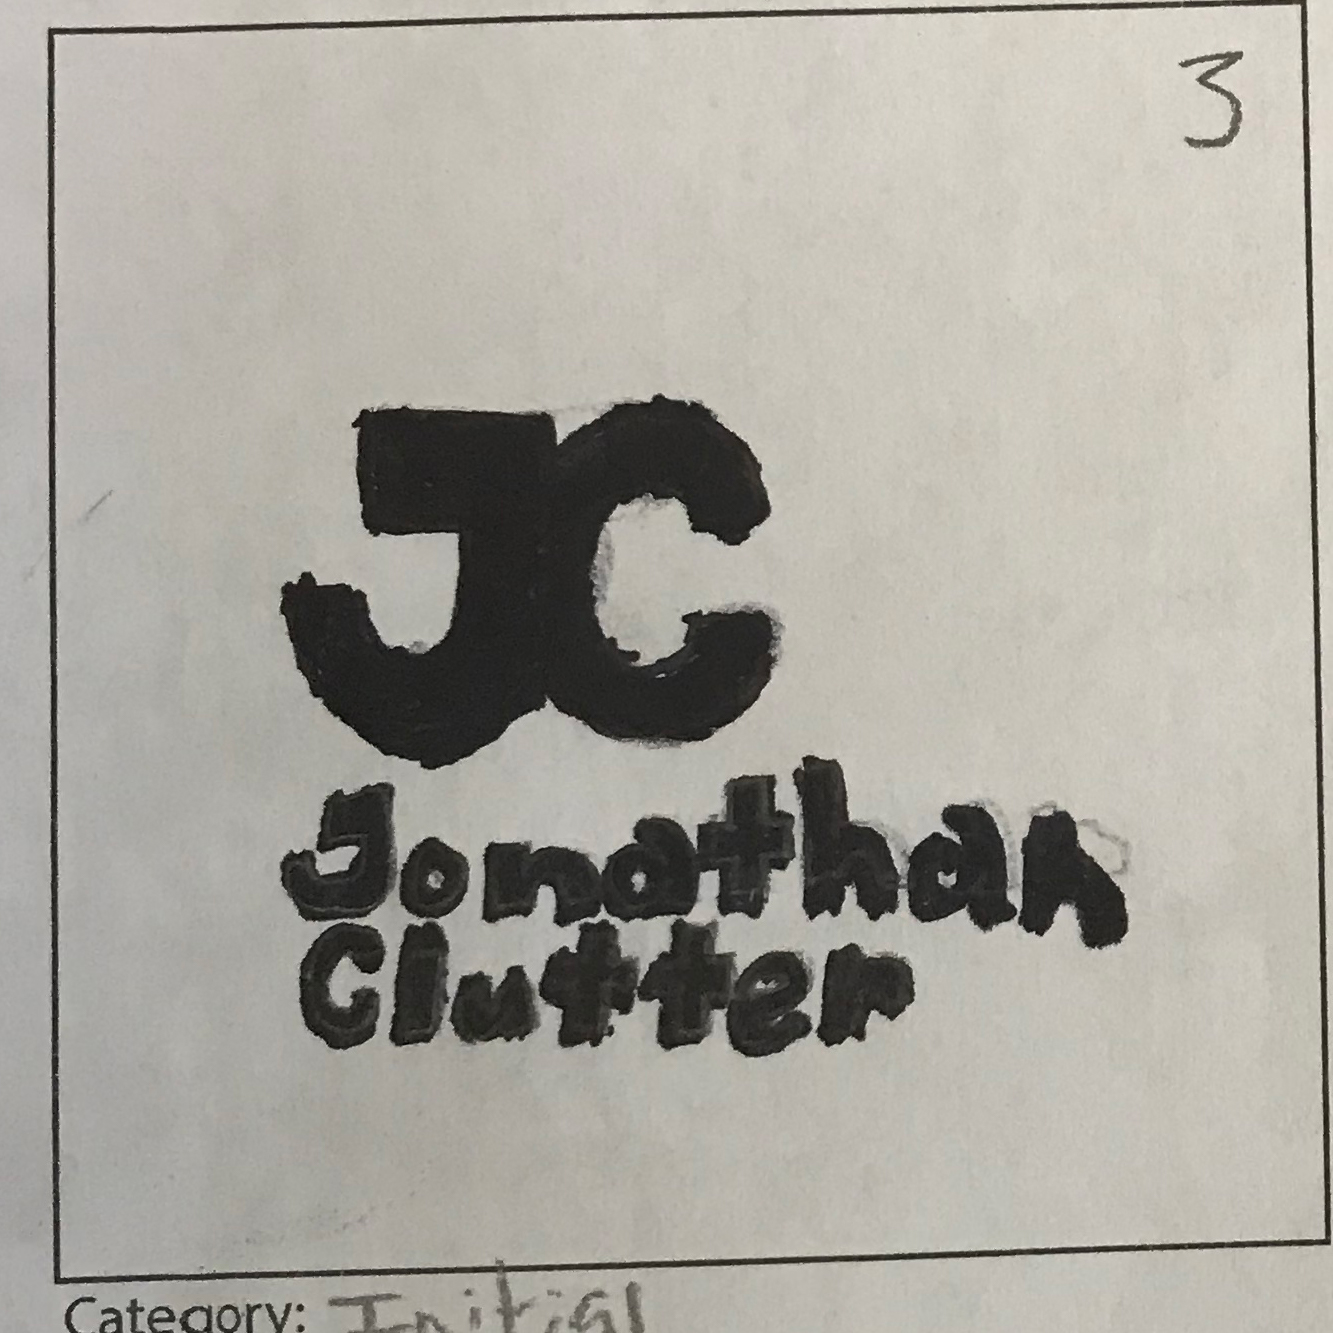 3
JC
Jonathan
Clutter
Category: Initial